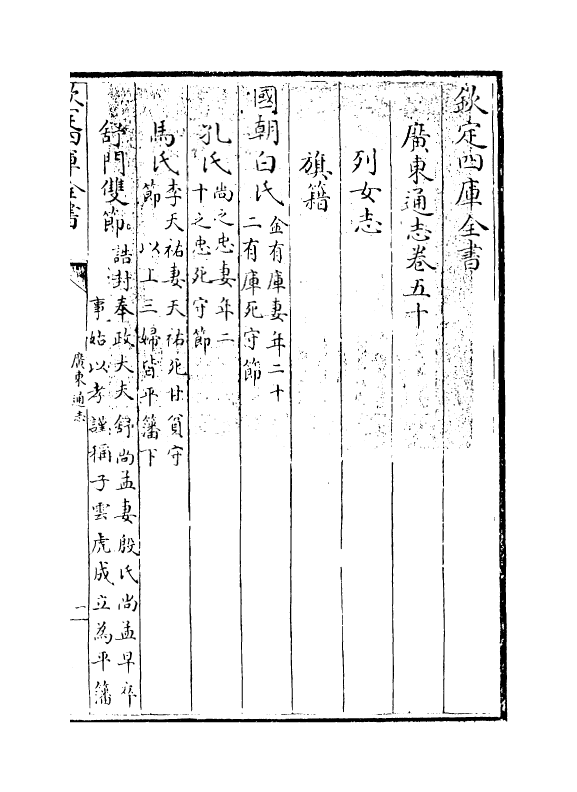 欽定四庫全書
廣東通志卷五十
列女志
旗籍
國朝白氏金有庫妻年二十
二有庫死守節
孔氏尚之忠妻年二
十之忠死守節
馬氏李天祐妻天祐死甘貧守
節 以上三婦皆平藩下
舒門雙節誥封奉政大夫舒尚孟妻殷氏尚孟早卒
事姑以孝謹稱子雲虎成立為平藩
欽定四庫全書
廣東通志
一